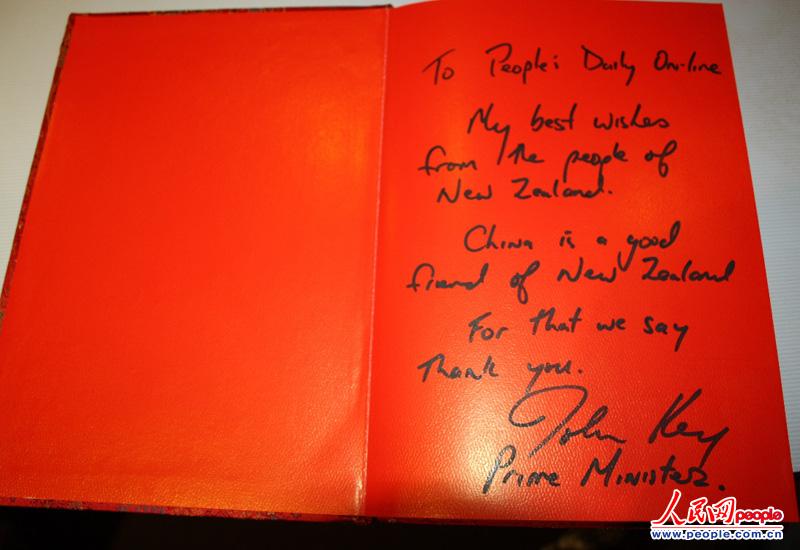 To People's Daily On-line
My best wishes
from the people of
New Zealand.
China is a good
friend of New Zealand
For that we say
Thank you.
John Key
Prime Minister.
人民网people
www.people.com.cn